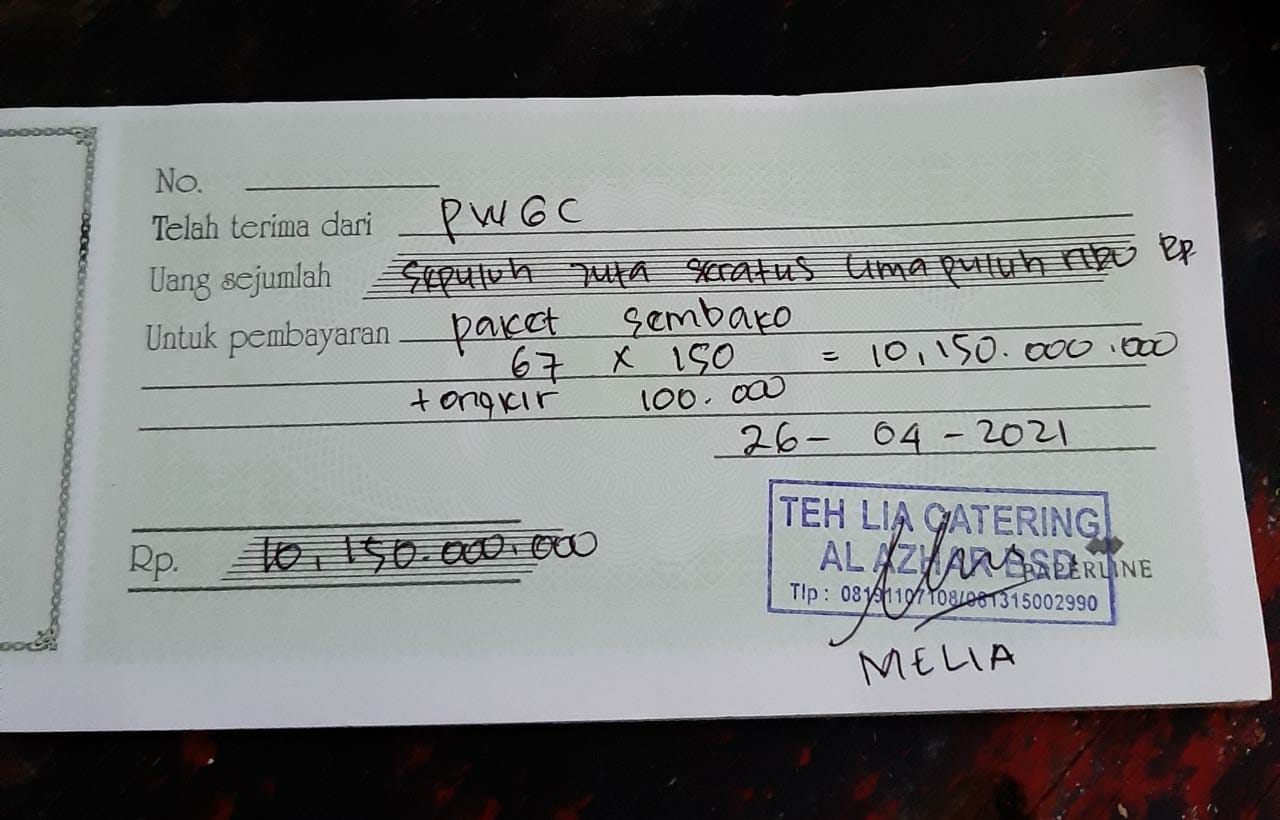 No.
Telah terima dari PWGC
Uang sejumlah Sepuluh Juta Seratus Lima puluh ribu Rp
Untuk pembayaran Paket Sembako
67 x 150 = 10,150.000.000
+ ongkir 100.000
26 - 04 - 2021
Rp. 10,150.000.000
TEH LIA CATERING
AL AZHAR BSD
PAPERLINE
Tlp : 08191107108/081315002990
MELIA